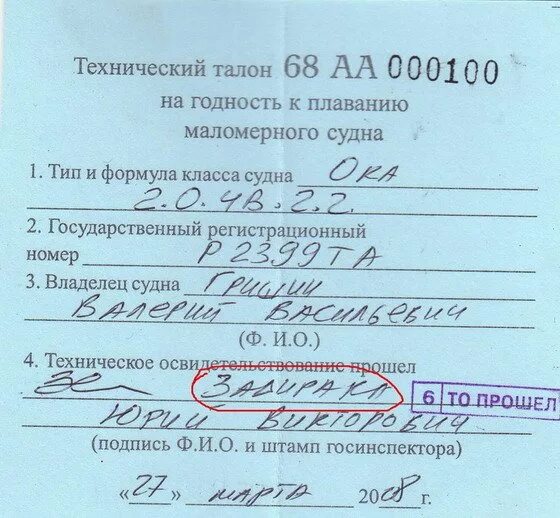 Технический талон 68 АА 000100
на годность к плаванию
маломерного судна
1. Тип и формула класса судна Ока
2.0.4В-2.2
2. Государственный регистрационный
номер Р2399ТА
3. Владелец судна Гришин
Валерий Васильевич
(Ф. И.О.)
4. Техническое освидетельствование прошел
6 ТО ПРОШЕЛ
Юрий Викторович
(подпись Ф.И.О. и штамп госинспектора)
«27» марта 2008г.